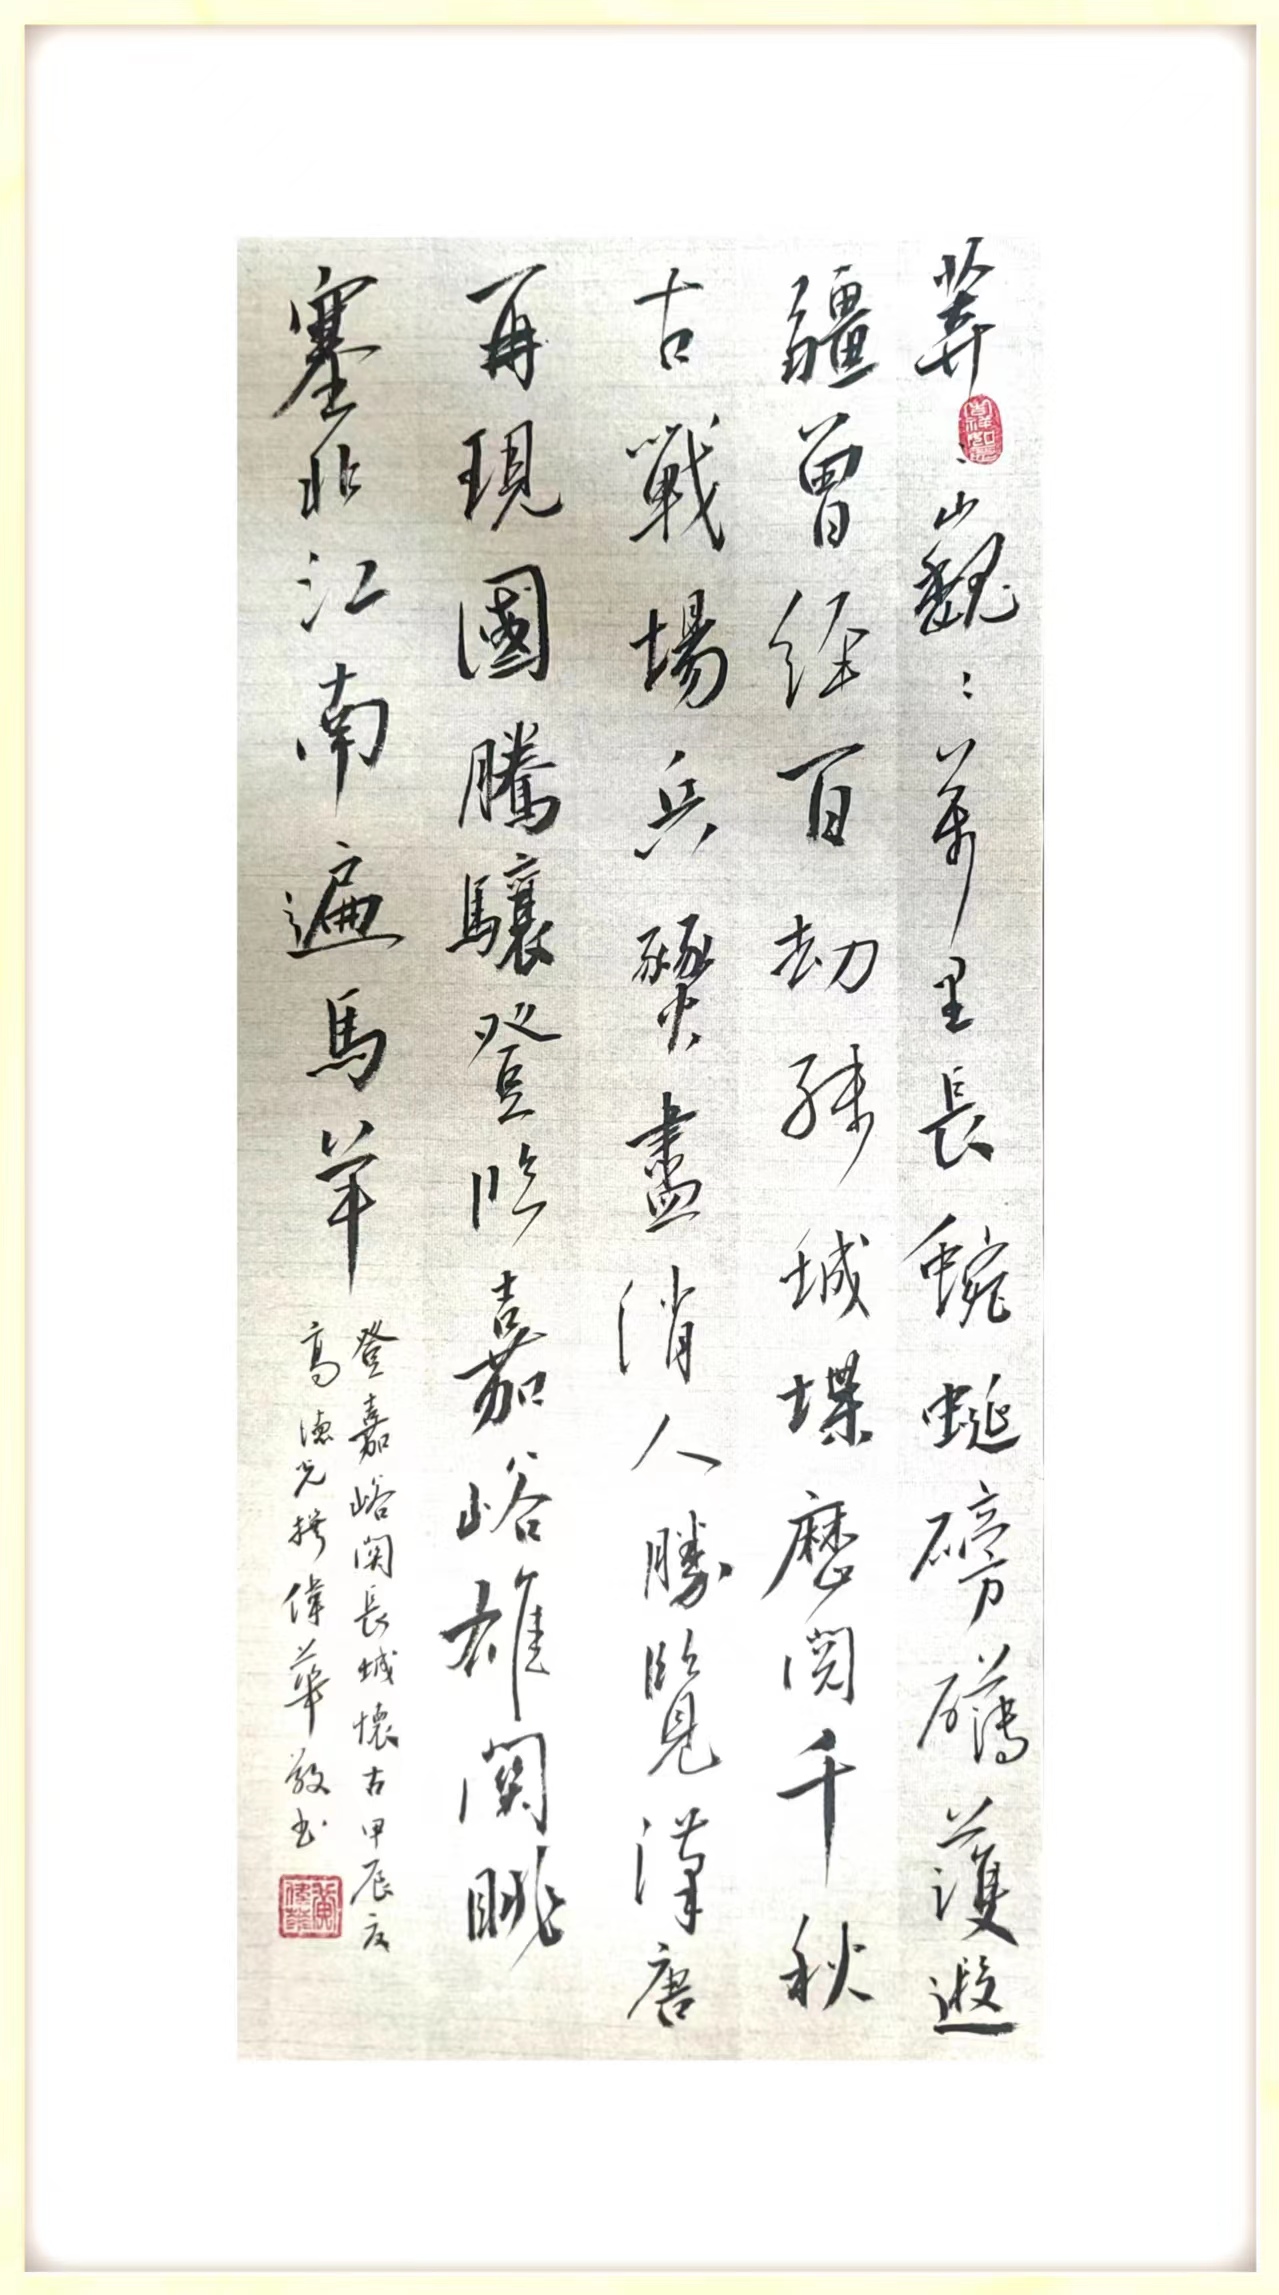 莽〻巍〻萬里長蜿蜒磅礴護遐
疆曾經百劫殘城堞歷閱千秋
古戰場兵燹盡消人勝覽漢唐
再現國騰驤登臨嘉峪雄關眺
塞北江南遍馬羊
登嘉峪關長城懷古甲辰
高德光撰偉華敬书